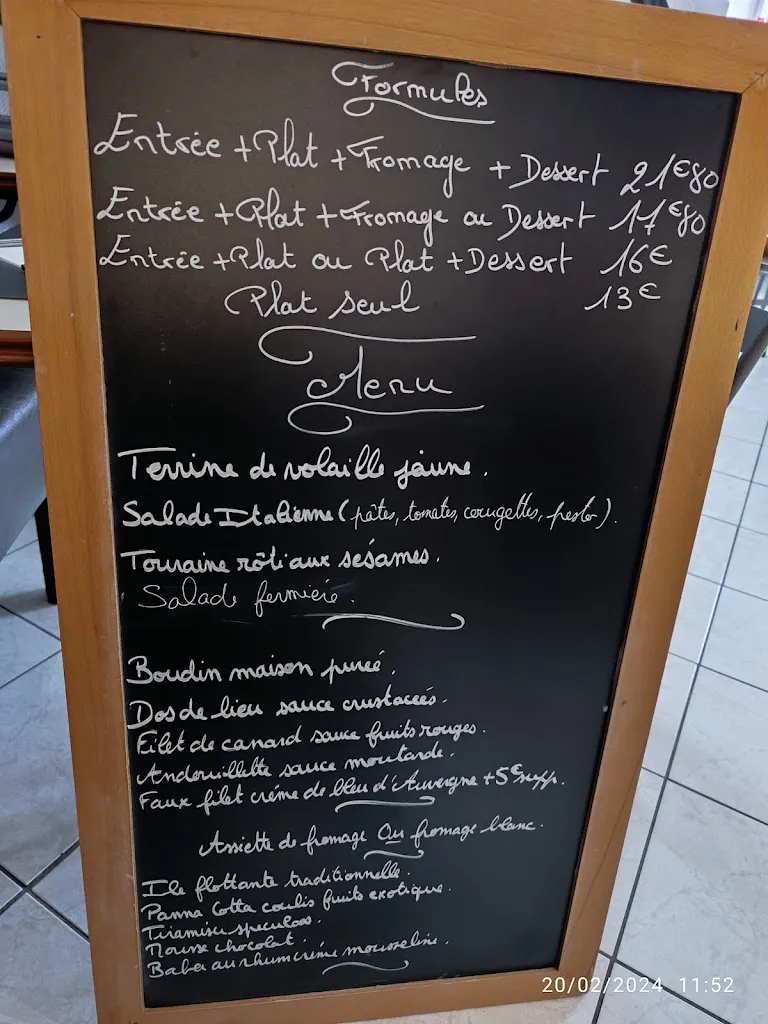 Formules
Entrée + Plat + Fromage + Dessert 21€80
Entrée + Plat + Fromage ou Dessert 17€80
Entrée + Plat ou Plat + Dessert 16€
Plat seul 13€
Menu
Terrine de volaille jaune.
Salade Italienne (pâtes, tomates, courgettes, pesto).
Touraine rôti aux sésames.
Salade fermière.
Boudin maison purée.
Dos de lieu sauce crustacés.
Filet de canard sauce fruits rouges.
Andouillette sauce moutarde.
Faux filet crème de bleu d'Auvergne +5€ supp.
Assiette de fromage Ou fromage blanc.
Ile flottante traditionnelle.
Panna Cotta coulis fruits exotique.
Tiramisu speculoos.
Mousse chocolat.
Baba au rhum crème mousseline.
20/02/2024 11:52